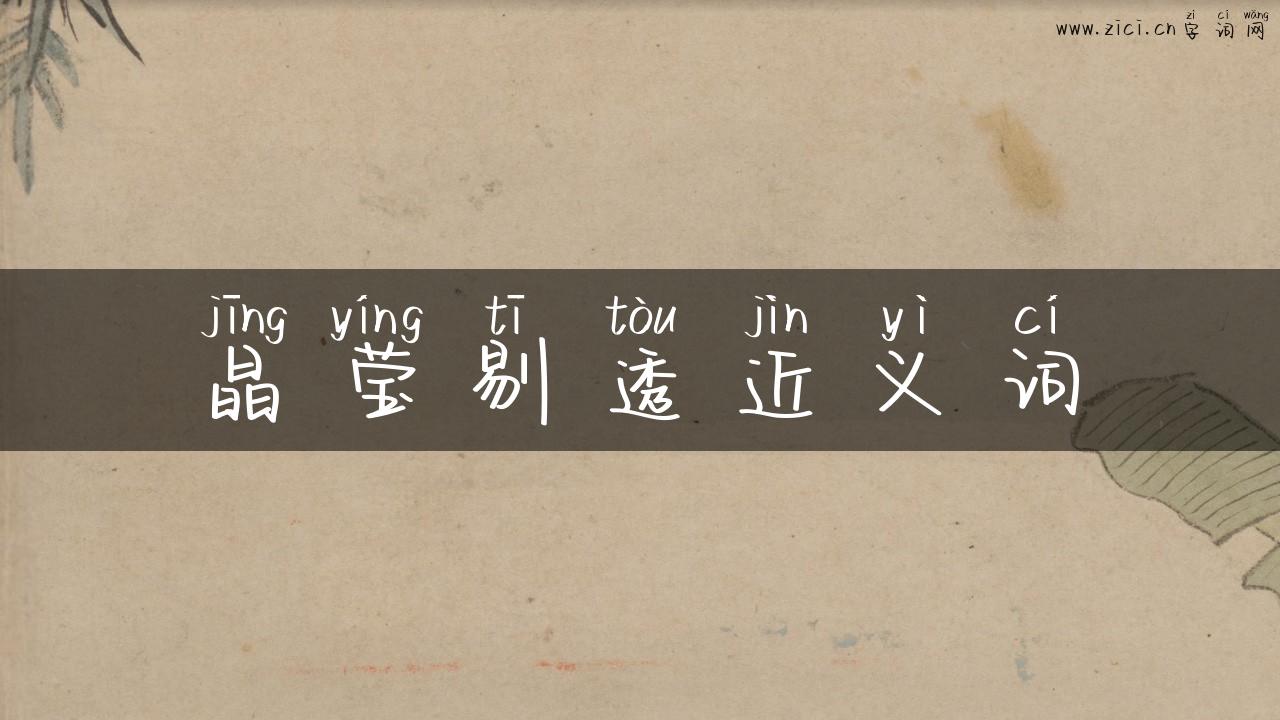 zì cí wǎng
www.zici.cn 字词网
jīng yíng tī tòu jìn yì cí
晶莹剔透近义词